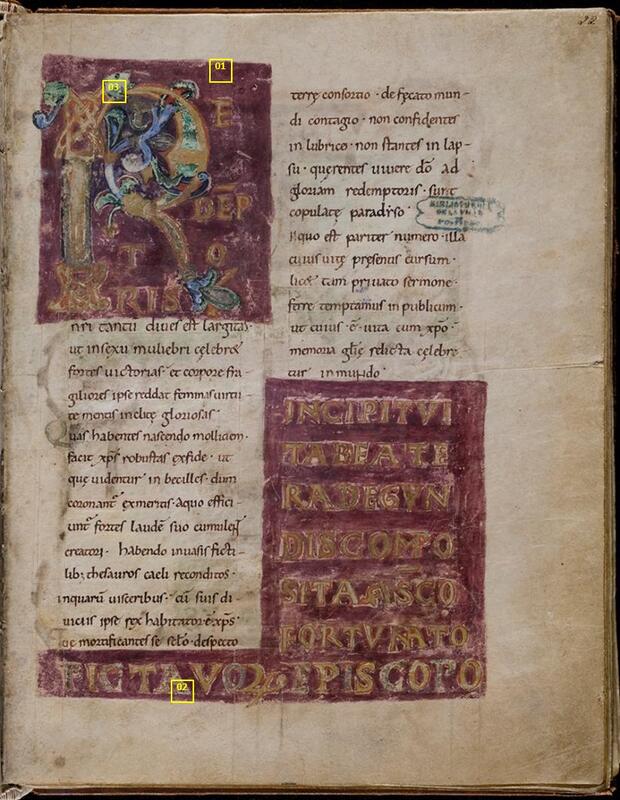 22
01
03
R E
DĒP
T O
RIS
nri tantū diues est largitas ·
ut insexu muliebri celebret
fortes uictorias · et corpore fra-
giliores ipse reddat feminas uirtu-
te mentis inclite gloriosas
uas habentes nascendo molliciem ·
facit xp̄s robustas exfide · ut
que uidentur in becilles · dum
coronant̄ exmeritis · aquo effici-
unt̄ fortes laudē suo cumulet
creatori · habendo inuasis ficti-
lib; thesauros caeli reconditos ·
inquarū uisceribus · cū suis di-
uiciis ipse rex habitator ē xp̄s
que mortificantes se sc̄lo · despecto
terre consortio · defecato mun-
di contagio · non confidentes
in lubrico · non stantes in lap-
su · querentes uiuere dō ad
gloriam redemptoris · sunt
copulate paradyso ·
BIBLIOTHEQUE
DE LA VILLE
POITIERS
Inquo est pariter numero · illa
cuius uite presentis cursum ·
licet tam priuato sermone ·
ferre temptamus in publicum ·
ut cuius · ē · uita cum xp̄o ·
memoria glie relicta celebre-
tur in mundo ·
INCIPIT VI
TA BEATE
RADEGVN
DIS COMPO
SITA A S̄CO
FORTVNATO
02
PICTAVOꝜ EPISCOPO